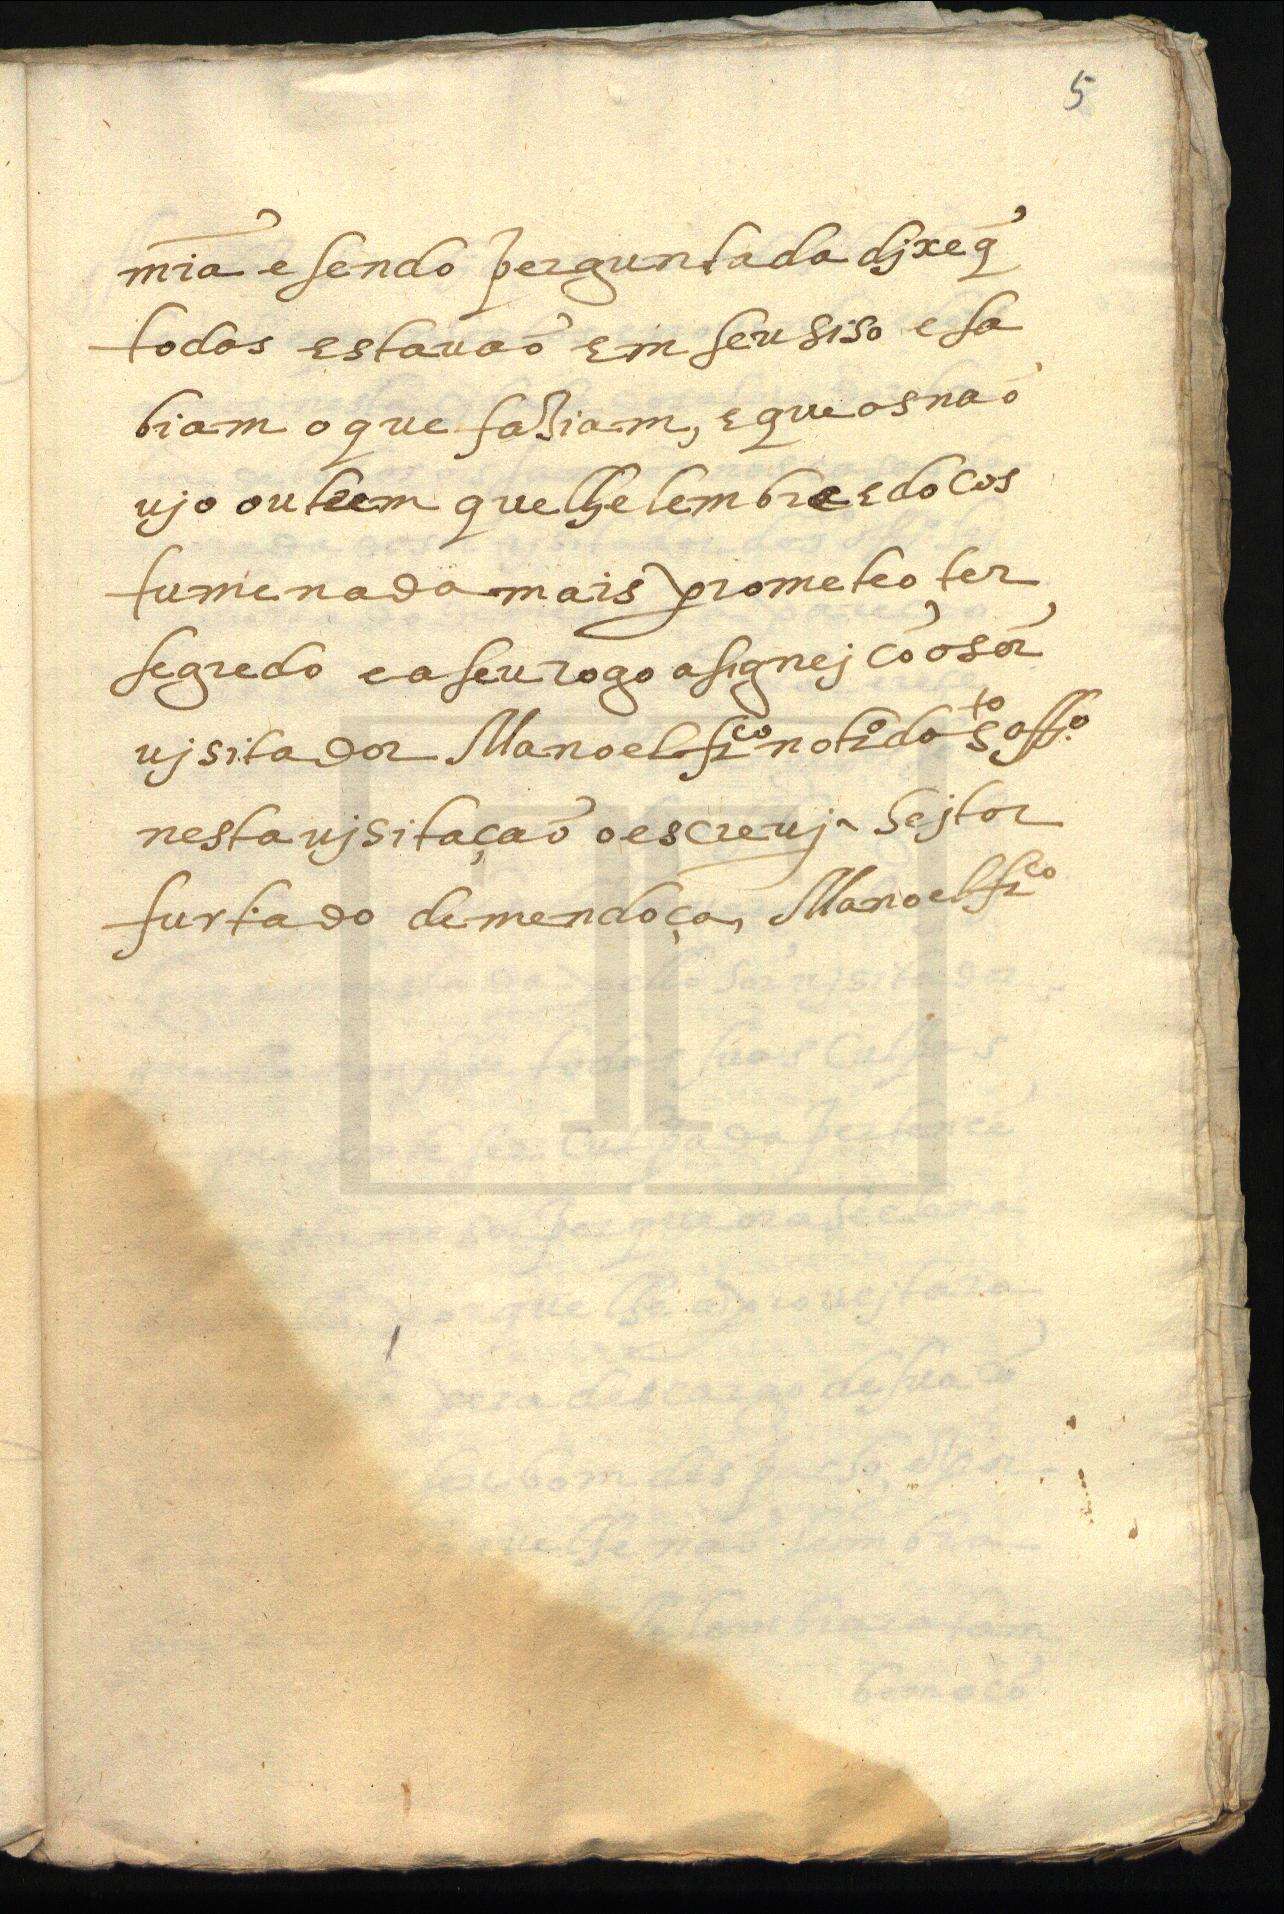 5
mia e sendo perguntada djxe q̃
todos estauaõ em seu siso e sa
biam o que fasiam, e que os naõ
ujo outrem que lhe lembre e do cos
tume nada mais prometeo ter
segredo e a seu rogo asignej cõ o sõr
ujsitador Manoel frco notro do sto offo
nesta ujsitaçaõ o escreuj. hejtor
furtado de mendoça, Manoel frco